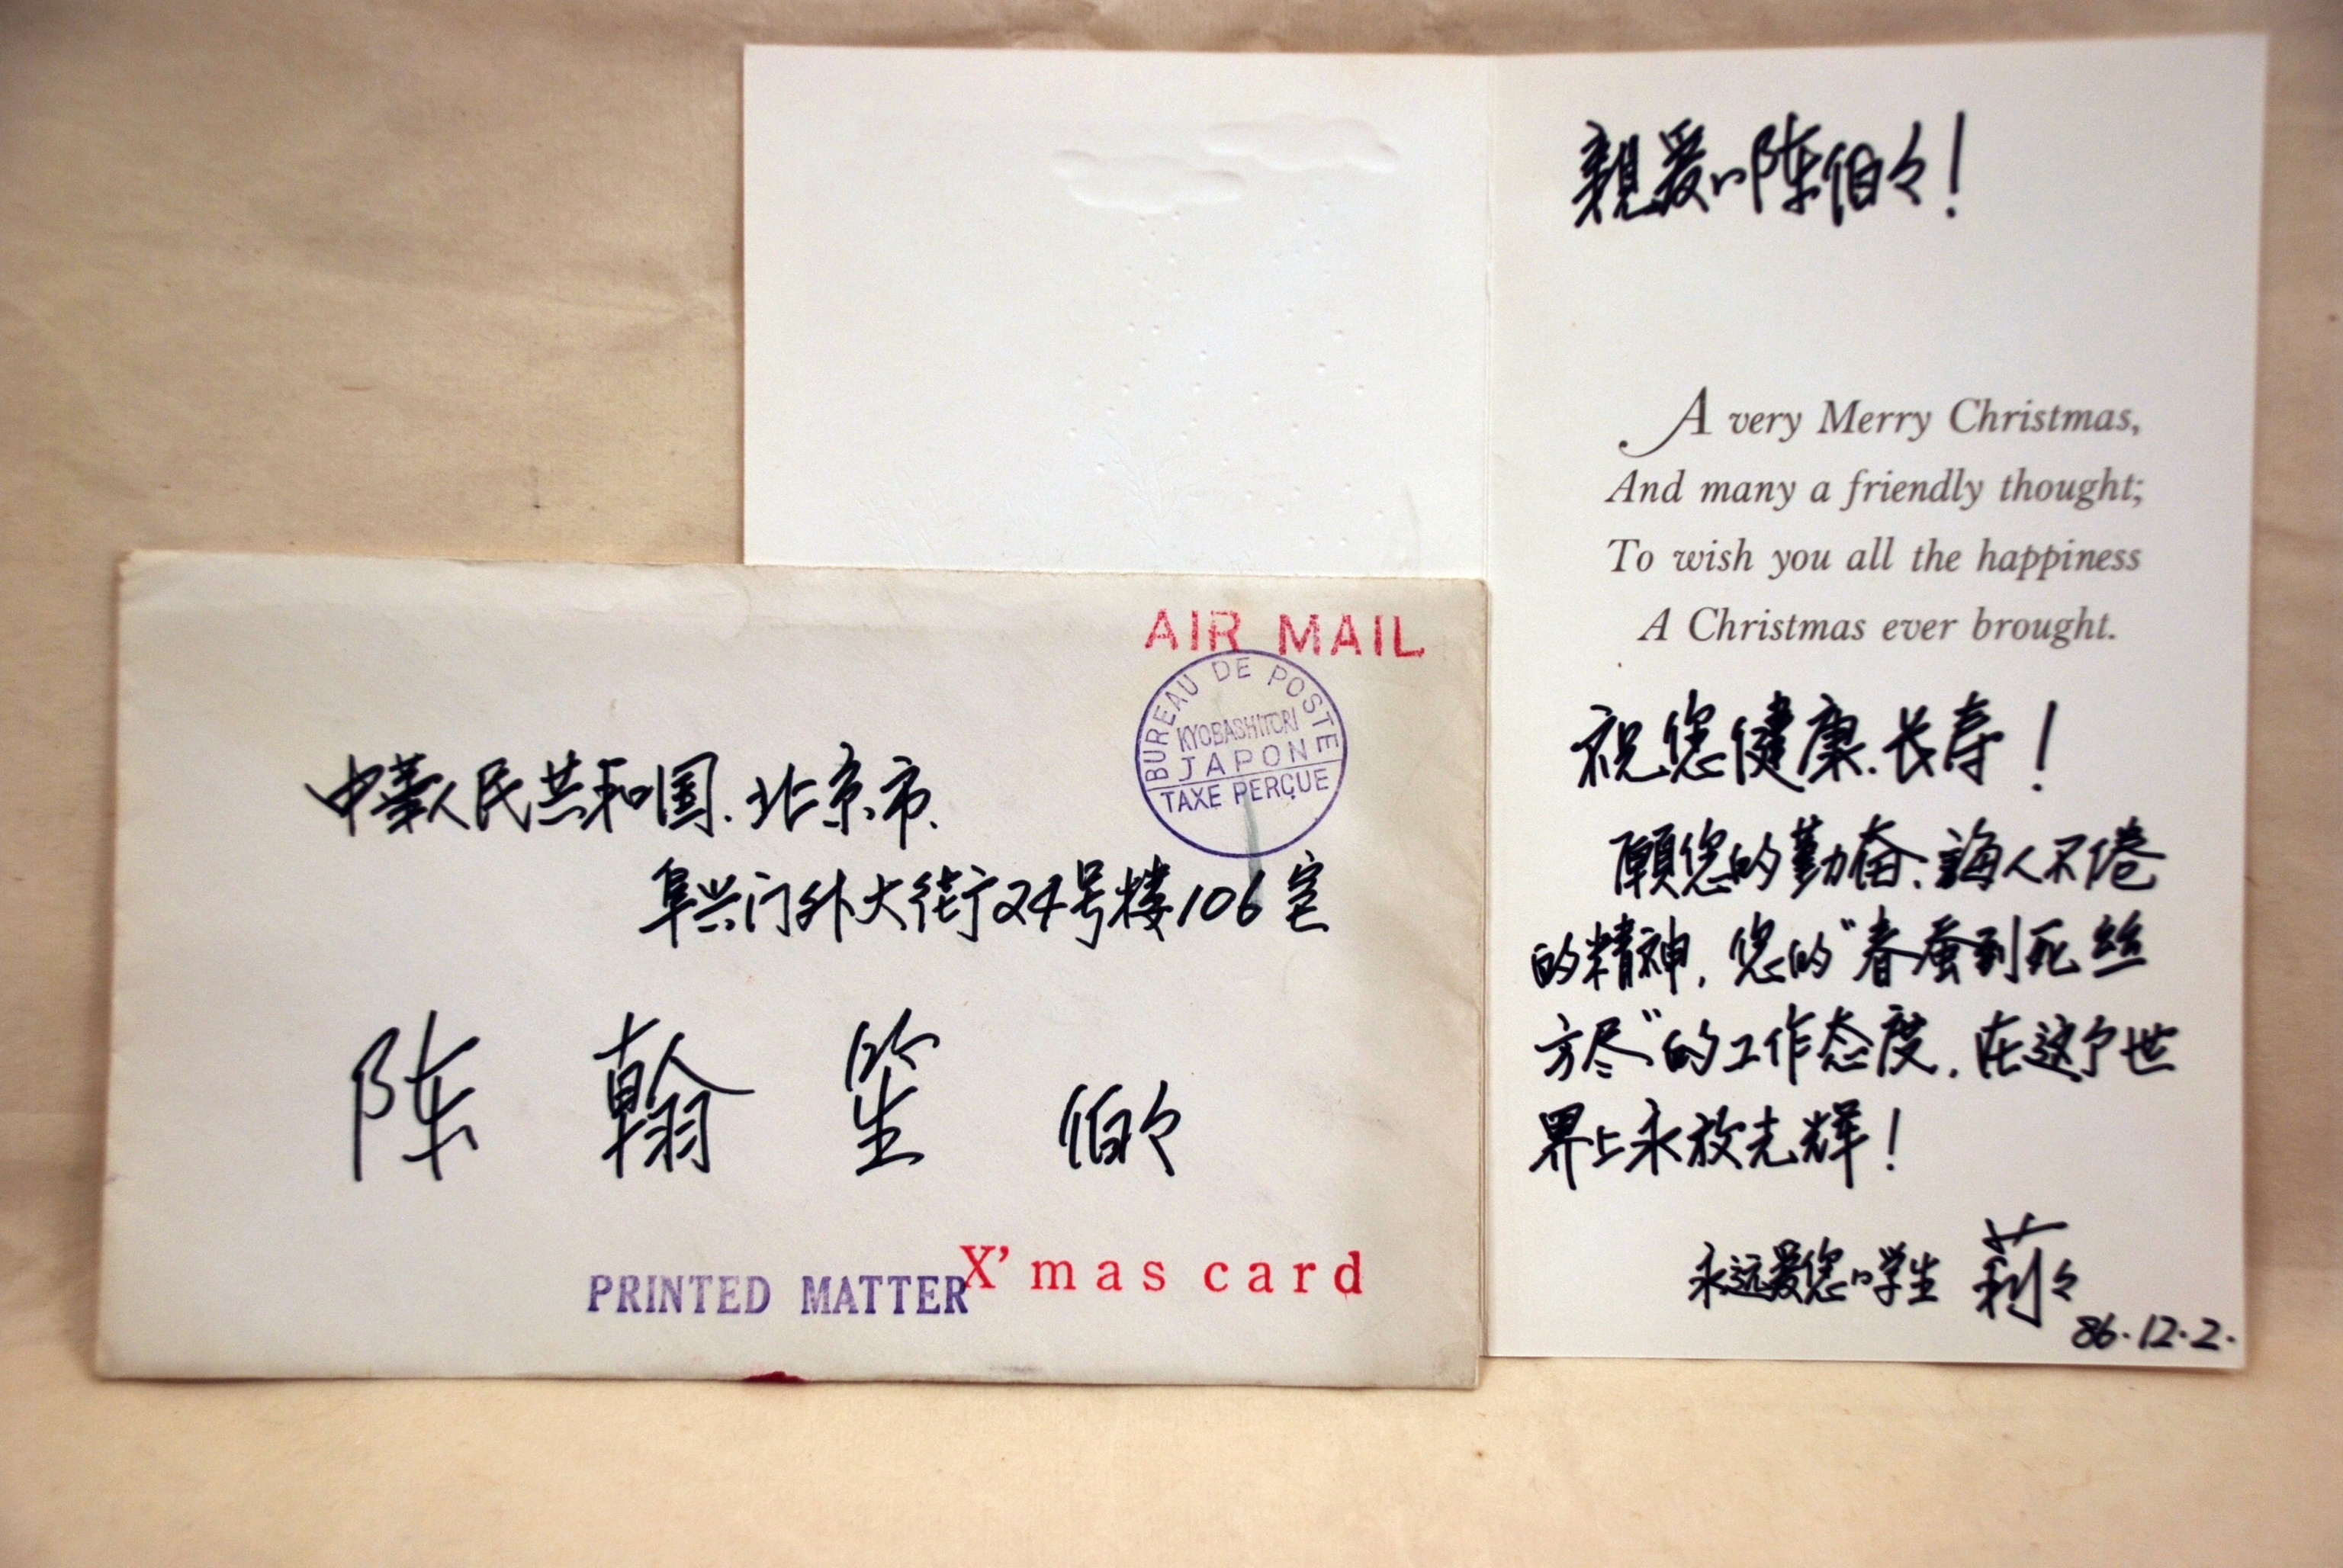 AIR MAIL
BUREAU DE POSTE
KYOBASHITORI
JAPON
TAXE PERÇUE
中華人民共和国.北京市.
阜兴门外大街24号楼106室
陈翰笙 伯々
PRINTED MATTER
X'mas card
親爱的陈伯々!
A very Merry Christmas,
And many a friendly thought;
To wish you all the happiness
A Christmas ever brought.
祝您健康.长寿!
願您的勤奋.誨人不倦
的精神,您的"春蚕到死丝
方尽"的工作态度,在这个世
界上永放光辉!
永远爱您的学生 莉々
86.12.2.